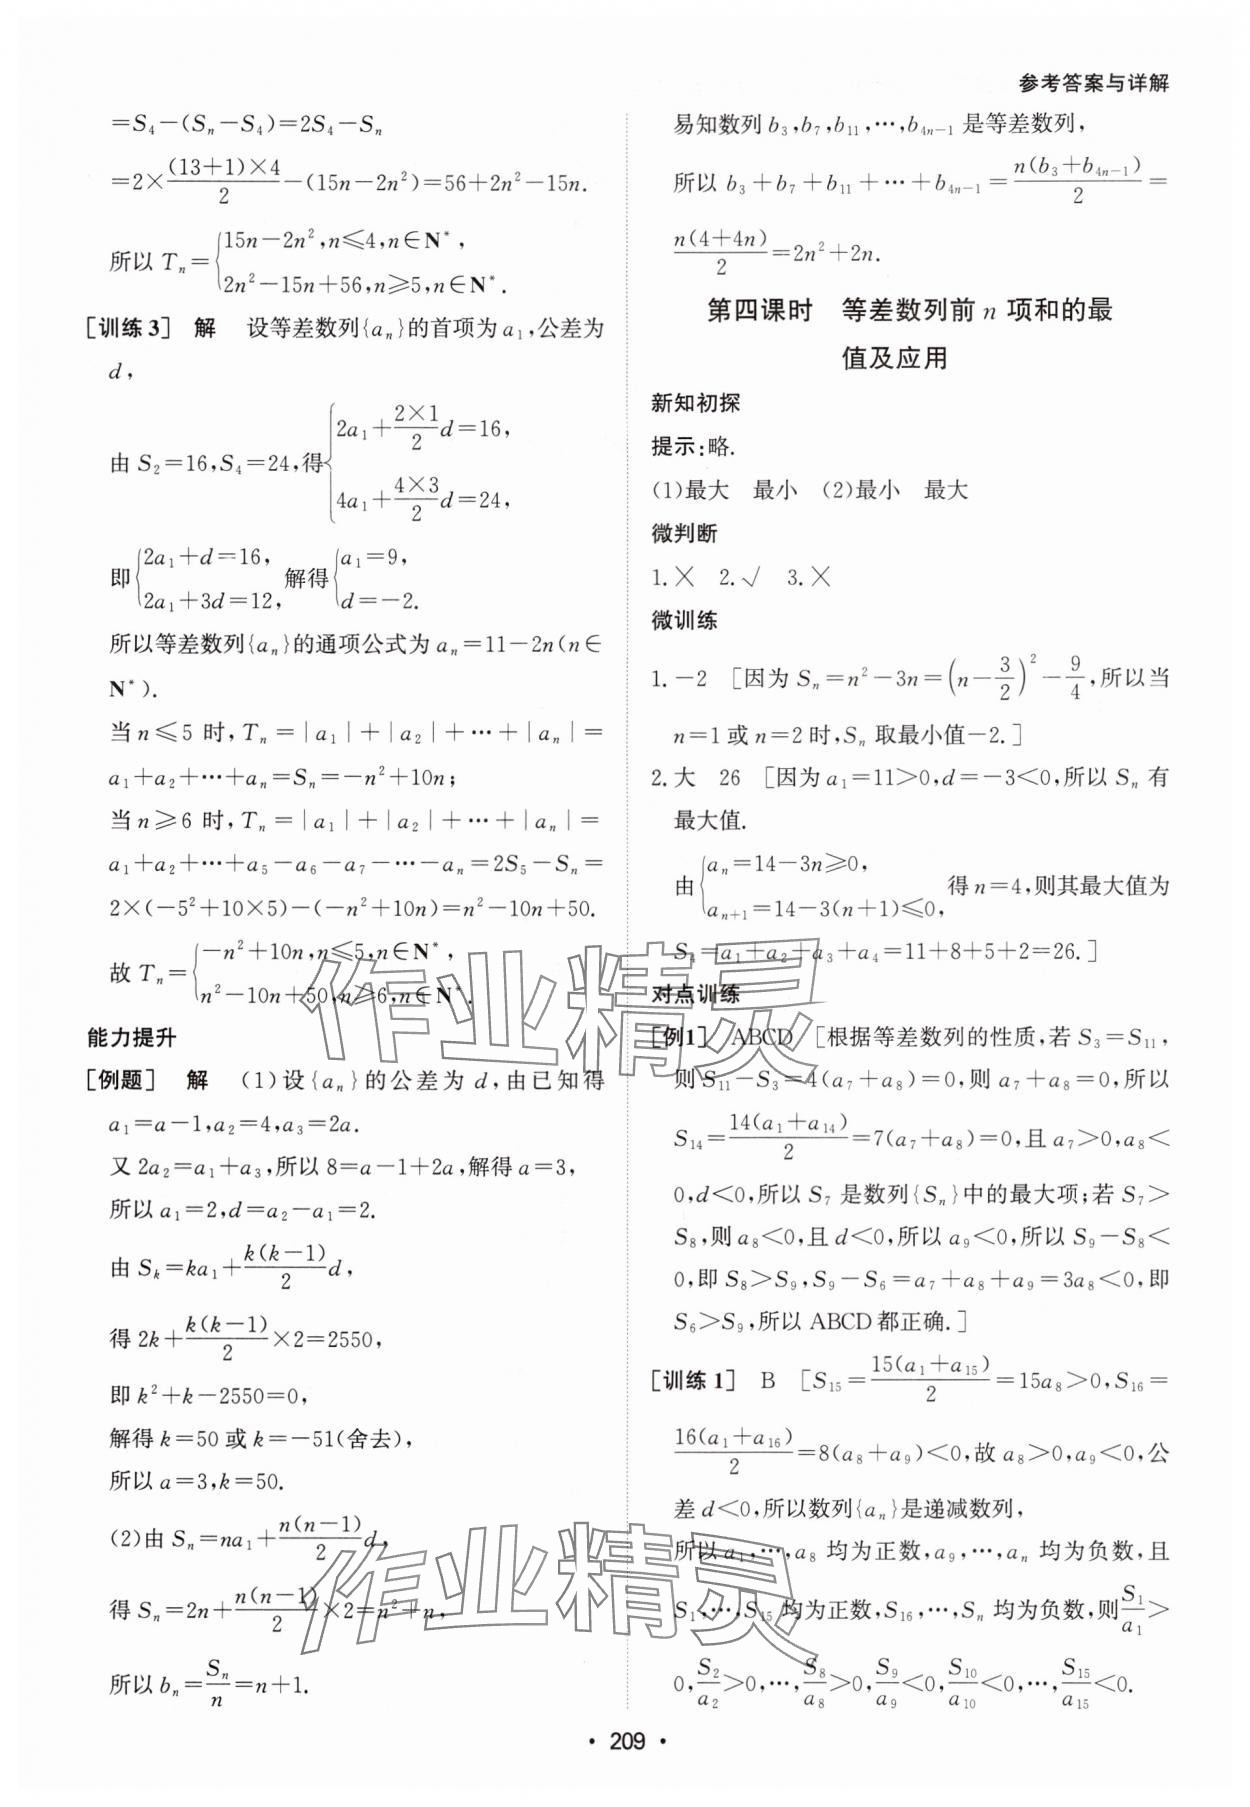 参考答案与详解
=S₄-(Sₙ-S₄)=2S₄-Sₙ
=2×(13+1)×4/2-(15n-2n²)=56+2n²-15n.
所以 Tₙ={15n-2n²,n≤4,n∈N*,
2n²-15n+56,n≥5,n∈N*.
[训练3] 解 设等差数列{aₙ}的首项为a₁,公差为
d,
由 S₂=16,S₄=24,得{2a₁+2×1/2 d=16,
4a₁+4×3/2 d=24,
即{2a₁+d=16,
2a₁+3d=12, 解得{a₁=9,
d=-2.
所以等差数列{aₙ}的通项公式为 aₙ=11-2n(n∈
N*).
当 n≤5 时,Tₙ=|a₁|+|a₂|+⋯+|aₙ|=
a₁+a₂+⋯+aₙ=Sₙ=-n²+10n;
当 n≥6 时,Tₙ=|a₁|+|a₂|+⋯+|aₙ|=
a₁+a₂+⋯+a₅-a₆-a₇-⋯-aₙ=2S₅-Sₙ=
2×(-5²+10×5)-(-n²+10n)=n²-10n+50.
故 Tₙ={-n²+10n,n≤5,n∈N*,
n²-10n+50,n≥6,n∈N*.
能力提升
[例题] 解 (1)设{aₙ}的公差为 d,由已知得
a₁=a-1,a₂=4,a₃=2a.
又 2a₂=a₁+a₃,所以 8=a-1+2a,解得 a=3,
所以 a₁=2,d=a₂-a₁=2.
由 Sₖ=ka₁+k(k-1)/2 d,
得 2k+k(k-1)/2×2=2550,
即 k²+k-2550=0,
解得 k=50 或 k=-51(舍去),
所以 a=3,k=50.
(2)由 Sₙ=na₁+n(n-1)/2 d,
得 Sₙ=2n+n(n-1)/2×2=n²+n,
所以 bₙ=Sₙ/n=n+1.
易知数列 b₃,b₇,b₁₁,⋯,b₄ₙ₋₁ 是等差数列,
所以 b₃+b₇+b₁₁+⋯+b₄ₙ₋₁=n(b₃+b₄ₙ₋₁)/2=
n(4+4n)/2=2n²+2n.
第四课时 等差数列前 n 项和的最
值及应用
新知初探
提示:略.
(1)最大 最小 (2)最小 最大
微判断
1.× 2.√ 3.×
微训练
1.-2 [因为 Sₙ=n²-3n=(n-3/2)²-9/4,所以当
n=1 或 n=2 时,Sₙ 取最小值-2.]
2.大 26 [因为 a₁=11>0,d=-3<0,所以 Sₙ 有
最大值.
由{aₙ=14-3n≥0,
aₙ₊₁=14-3(n+1)≤0, 得 n=4,则其最大值为
S₄=a₁+a₂+a₃+a₄=11+8+5+2=26.]
对点训练
[例1] ABCD [根据等差数列的性质,若 S₃=S₁₁,
则 S₁₁-S₃=4(a₇+a₈)=0,则 a₇+a₈=0,所以
S₁₄=14(a₁+a₁₄)/2=7(a₇+a₈)=0,且 a₇>0,a₈<
0,d<0,所以 S₇ 是数列{Sₙ}中的最大项;若 S₇>
S₈,则 a₈<0,且 d<0,所以 a₉<0,所以 S₉-S₈<
0,即 S₈>S₉,S₉-S₆=a₇+a₈+a₉=3a₈<0,即
S₆>S₉,所以 ABCD 都正确.]
[训练1] B [S₁₅=15(a₁+a₁₅)/2=15a₈>0,S₁₆=
16(a₁+a₁₆)/2=8(a₈+a₉)<0,故 a₈>0,a₉<0,公
差 d<0,所以数列{aₙ}是递减数列,
所以 a₁,⋯,a₈ 均为正数,a₉,⋯,aₙ 均为负数,且
S₁,⋯,S₁₅ 均为正数,S₁₆,⋯,Sₙ 均为负数,则S₁/a₁>
0,S₂/a₂>0,⋯,S₈/a₈>0,S₉/a₉<0,S₁₀/a₁₀<0,⋯,S₁₅/a₁₅<0.
作业精灵
作业精灵
· 209 ·